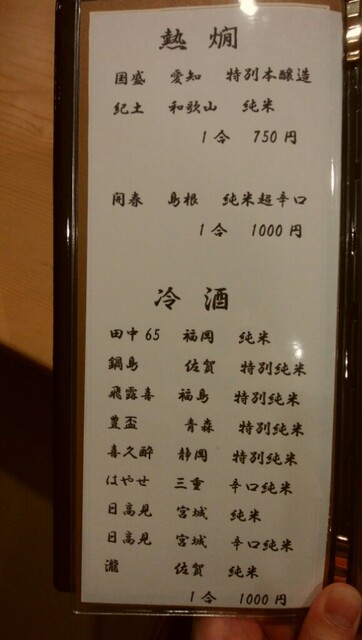 熱燗
国盛 愛知 特別本醸造
紀土 和歌山 純米
1合 750円
開春 島根 純米超辛口
1合 1000円
冷酒
田中65 福岡 純米
鍋島 佐賀 特別純米
飛露喜 福島 特別純米
豊盃 青森 特別純米
喜久酔 静岡 特別純米
はやせ 三重 辛口純米
日高見 宮城 純米
日高見 宮城 辛口純米
瀧 佐賀 純米
1合 1000円